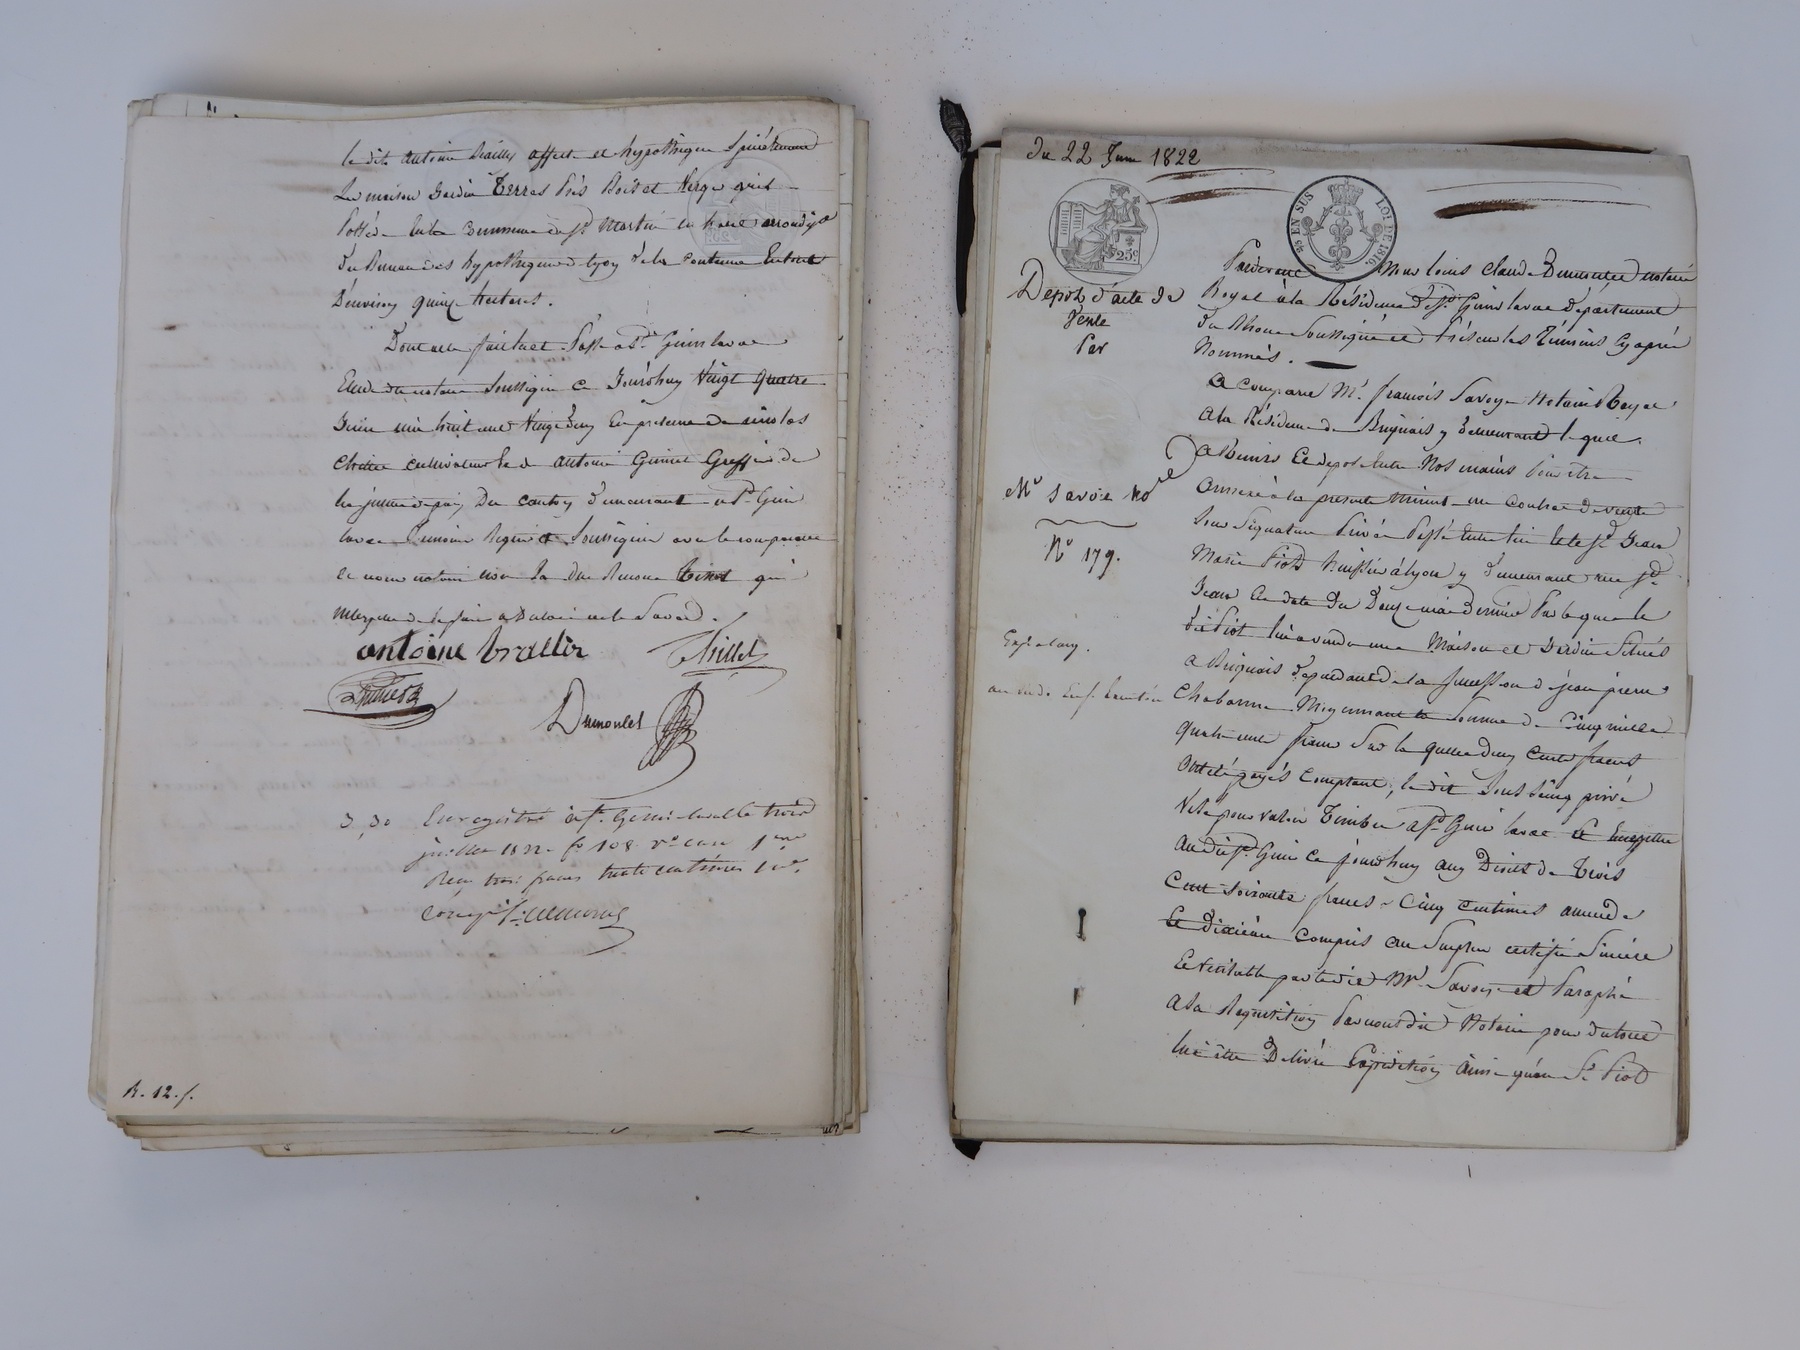 le dit antoine affecte et hypothèque Spécialement
Sa maison Jardin Terres Prés Bois et Verger qu'il
Possède en la Commune de St Martin en haut arrondisst
du Bureau des hypothèques de Lyon de la Contenue En tout
D'environ quinze hectares.
Dont acte fait et Passé a St Genis laval
Etude du notaire Soussigné ce Jourdhuy Vingt quatre
Juin mil huit cent Vingt Deux En présence de
cultivateur et de antoine Greffier de
la justice de paix Du canton Demeurant a St Genis
laval Temoins Requis et Soussignés avec le comparant
et nous notaire non la dite qui
de le faire a Déclaré ne le Savoir.
antoine
Dumoulet
3, 30 Enregistré à St Genis-laval le trois
juillet 1822 fo 108 Vo case 1re
Reçu trois francs trente centimes
R. 12. f.
du 22 Juin 1822
25c
EN SUS LOI DE 1816
Dépôt d'acte de
Vente
Par
Mr Savoie Nore
No 179.
Pardevant Mtre louis Claude Dumoulet notaire
Royal à la Résidence de St Genis laval Département
du Rhone Soussigné et Présence les Témoins Cy après
Nommés.
a Comparu Mr. françois Savoye Notaire Royal
a la Résidence de Brignais y Demeurant lequel
a Remis Et déposé Entre Nos mains Pour être
annexé à la présente minute un Contrat de vente
Sous Signature Privée Passé Entre lui et le Sr Jean
Marie Piot huissier à lyon y Demeurant rue St
Jean En date du Deux mai dernier Par lequel le
dit Piot lui a vendu une Maison et Jardin Situés
a Brignais dépendant de la Succession de jean pierre
Chabanne Moyennant la Somme de Cinq mille
quatre cent francs Sur laquelle deux Cents francs
Ont été payés Comptant, le dit Sous Seing privé
Visé pour valoir Timbre a St Genis laval Et Enregistré
Au dit St Genis Ce jourdhuy aux Droits de Trois
Cent soixante francs Cinq Centimes amende
Et Dixième Compris au Surplus certifié Sincère
Et Véritable par le dit Mr Savoye et Paraphé
a la Requisition Par nous dit Notaire pour du tout
lui être Délivré Expedition Ainsi qu'au Sr Piot